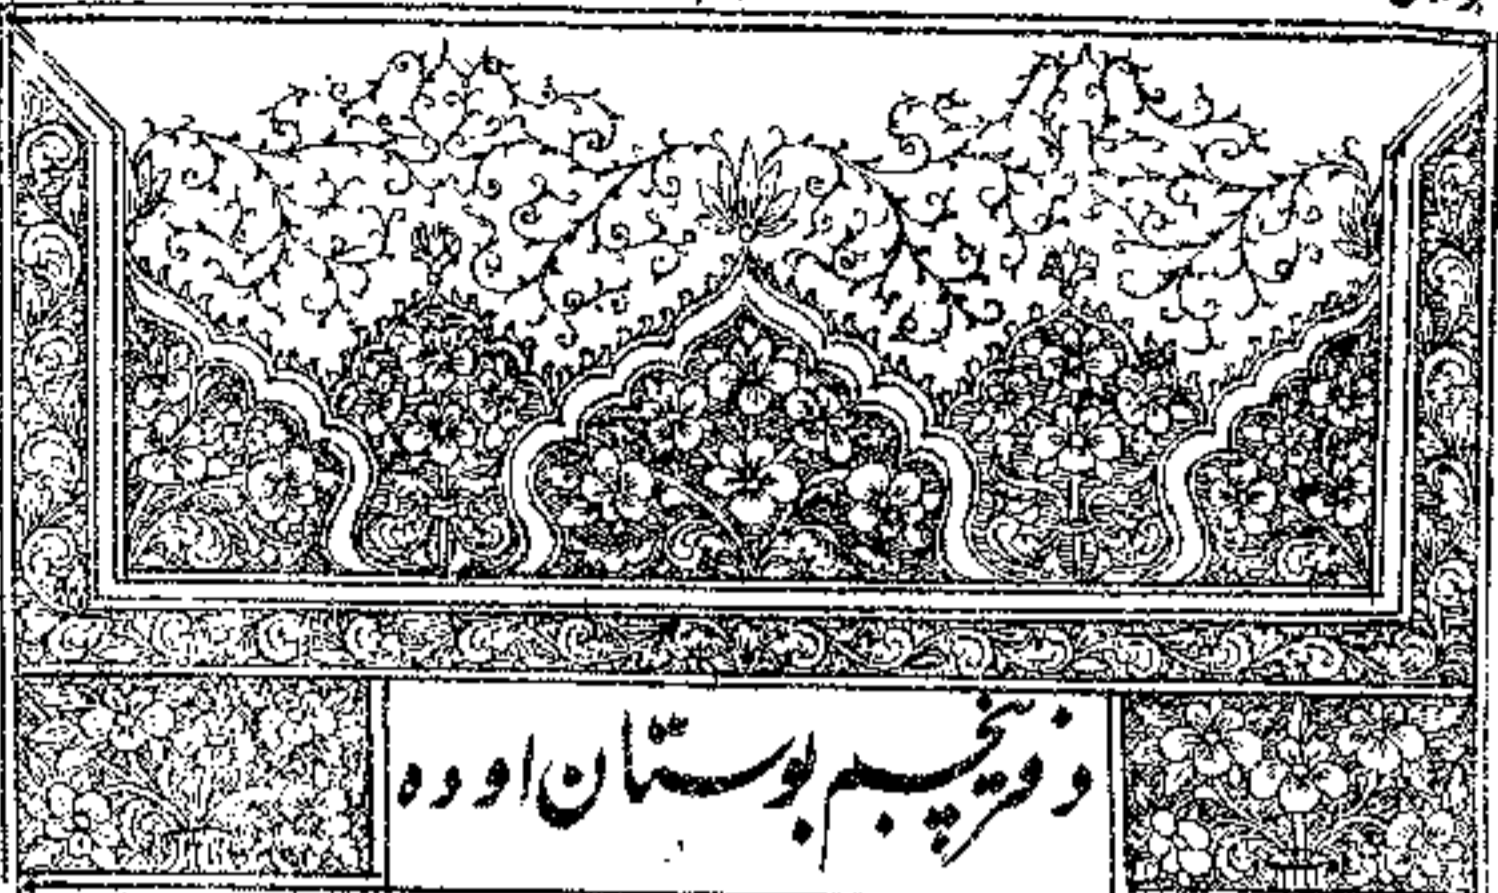 دفتر پنجم بوستان اودہ